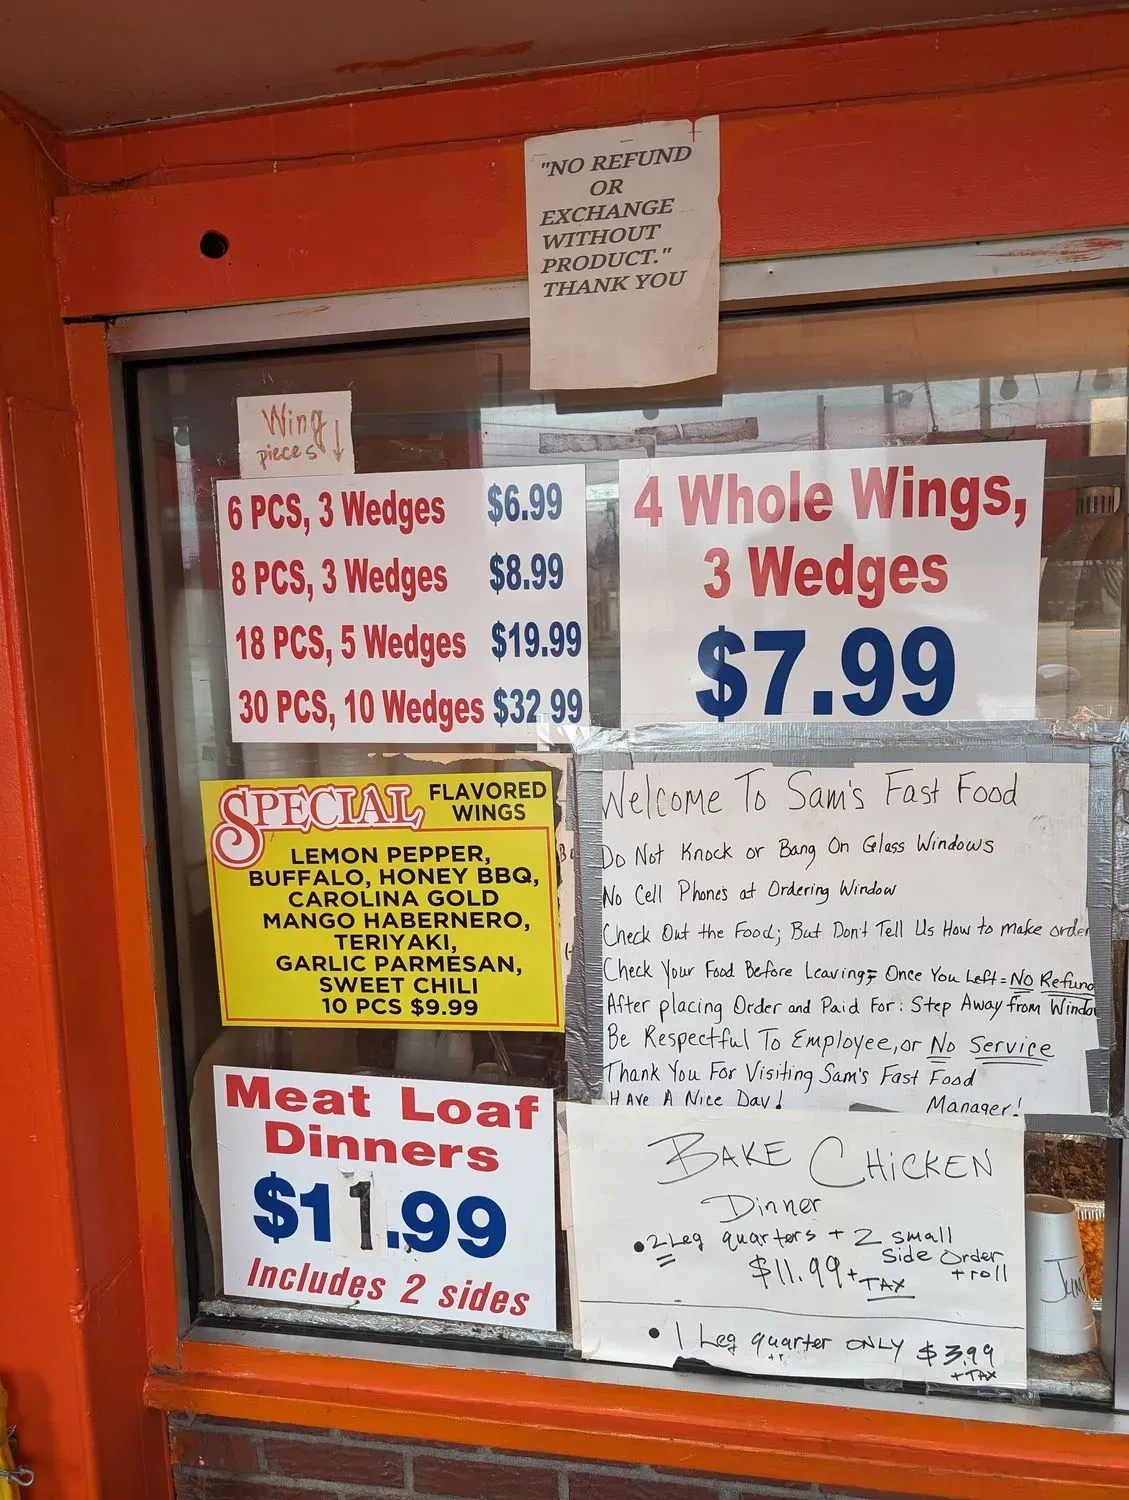 "NO REFUND
OR
EXCHANGE
WITHOUT
PRODUCT."
THANK YOU
Wing
pieces
6 PCS, 3 Wedges $6.99
8 PCS, 3 Wedges $8.99
18 PCS, 5 Wedges $19.99
30 PCS, 10 Wedges $32.99
4 Whole Wings,
3 Wedges
$7.99
SPECIAL FLAVORED
WINGS
LEMON PEPPER,
BUFFALO, HONEY BBQ,
CAROLINA GOLD
MANGO HABERNERO,
TERIYAKI,
GARLIC PARMESAN,
SWEET CHILI
10 PCS $9.99
Welcome To Sam's Fast Food
Do Not Knock or Bang On Glass Windows
No Cell Phones at Ordering Window
Check Out the Food; But Don't Tell Us How to make order
Check Your Food Before Leaving; Once You Left = No Refund
After placing Order and Paid For: Step Away from Window
Be Respectful To Employee, or No Service
Thank You For Visiting Sam's Fast Food
Have A Nice Day! Manager!
Meat Loaf
Dinners
$11.99
Includes 2 sides
BAKE CHICKEN
Dinner
• 2 Leg quarters + 2 small
Side Order
$11.99 + TAX + roll
• 1 Leg quarter ONLY $3.99
+ TAX